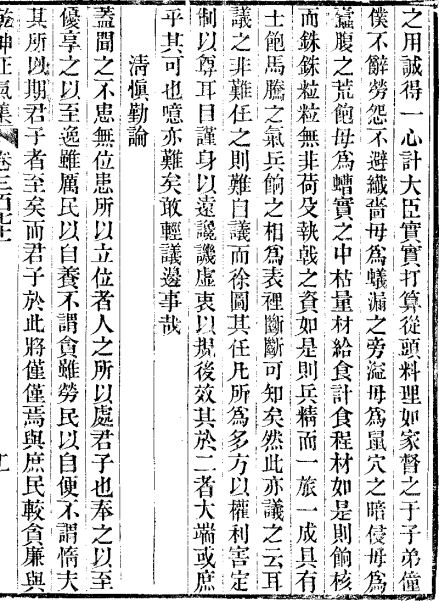 之用誠得一心計大臣實實打算從頭料理如家督之于子弟僮
僕不辭勞怨不避纖嗇毋爲蟻漏之旁溢毋爲鼠穴之暗侵毋爲
蠹腹之荒飽毋爲螬實之中枯量材給食計食程材如是則餉核
而銖銖粒粒無非荷殳執戟之資如是則兵精而一旅一成具有
士飽馬騰之氣兵餉之相爲表裡斷斷可知矣然此亦議之云耳
議之非難任之則難自議而徐圖其任凡所爲多方以權利害定
制以尊耳目謹身以遠讒譏虛衷以規後效其於二者大端或庶
乎其可也噫亦難矣敢輕議邊事哉
淸愼勤論
蓋聞之不患無位患所以立位者人之所以處君子也奉之以至
優享之以至逸雖厲民以自養不謂貪雖勞民以自便不謂惰夫
其所以期君子者至矣而君子於此將僅僅焉與庶民較貪廉與
乾坤正氣集 卷三百七十